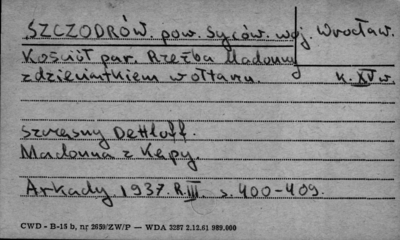 SZCZODRÓW. pow. Syców. woj. Wrocław.
Kościół par. Rzeźba Madonny
z dzieciątkiem w ołtarzu. k. XV w.
Szczęsny Dettloff.
Madonna z Kępy.
Arkady 1937. R. III. s. 400-409.
CWD - B-15 b, nr 2659/ZW/P — WDA 3287 2.12.61 989.000